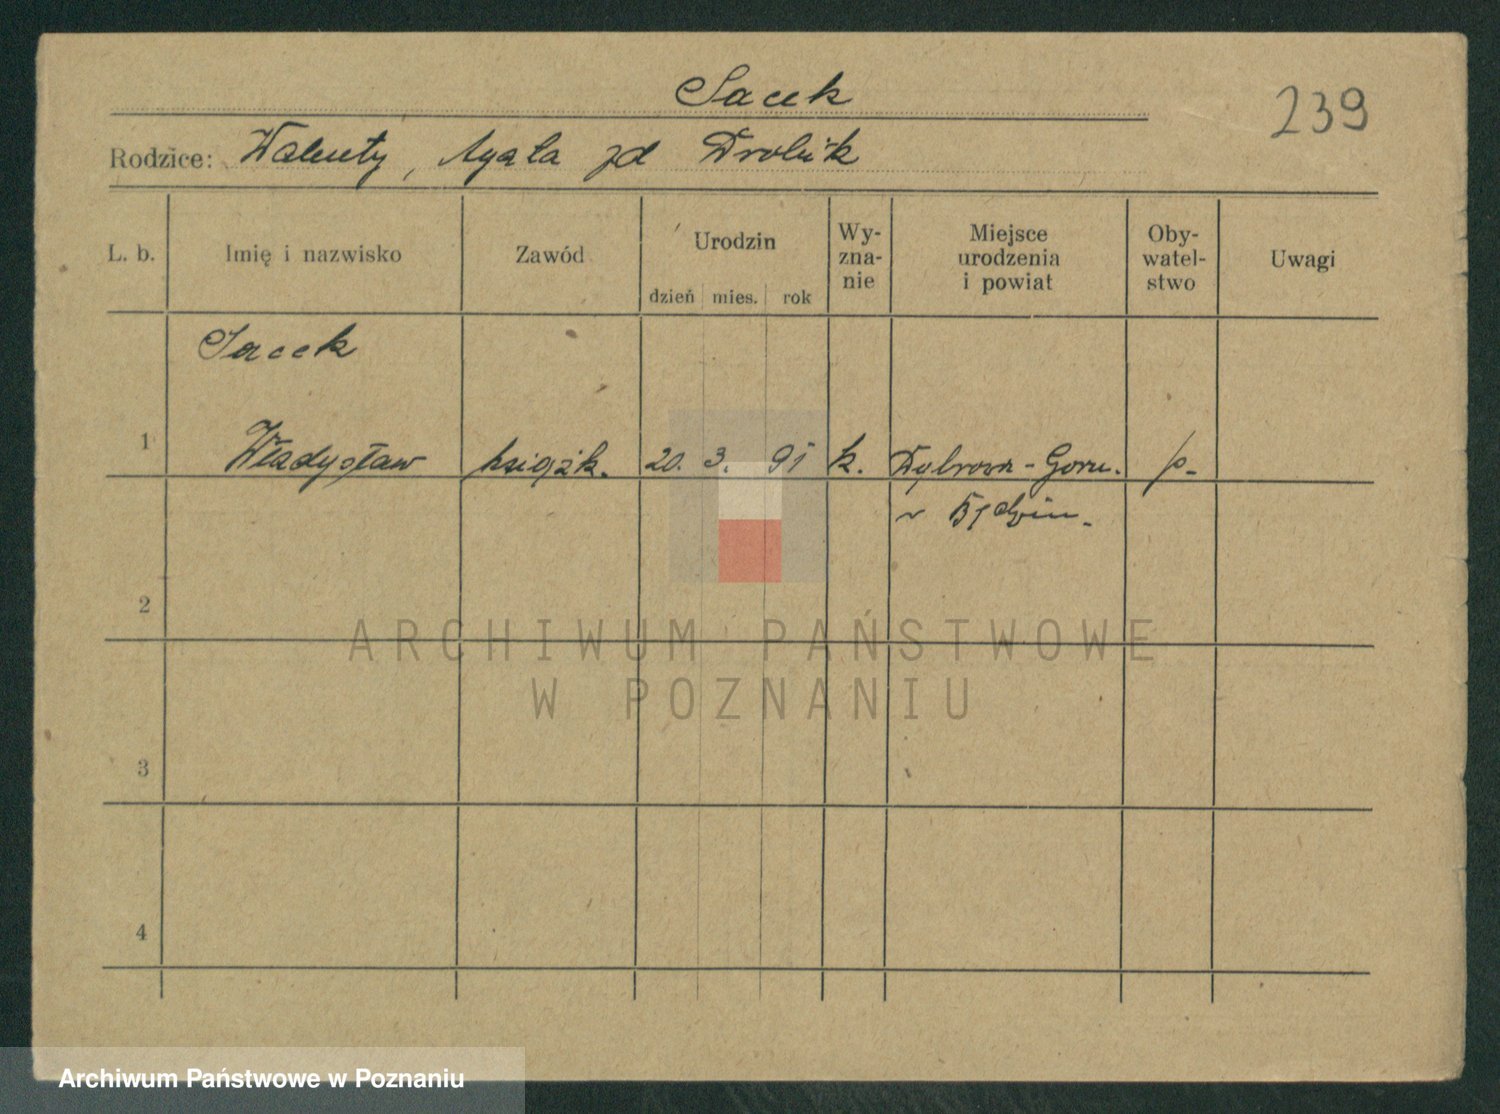 Sacek
239
Rodzice: Walenty, Agata zd Drobik
L. b.
Imię i nazwisko
Zawód
Urodzin
dzień mies. rok
Wy-
zna-
nie
Miejsce
urodzenia
i powiat
Oby-
watel-
stwo
Uwagi
Sacek
1 Władysław książk. 20. 3. 91 k. Dąbrowa-Górn. p-
2
ARCHIWUM PAŃSTWOWE
W POZNANIU
3
4
Archiwum Państwowe w Poznaniu